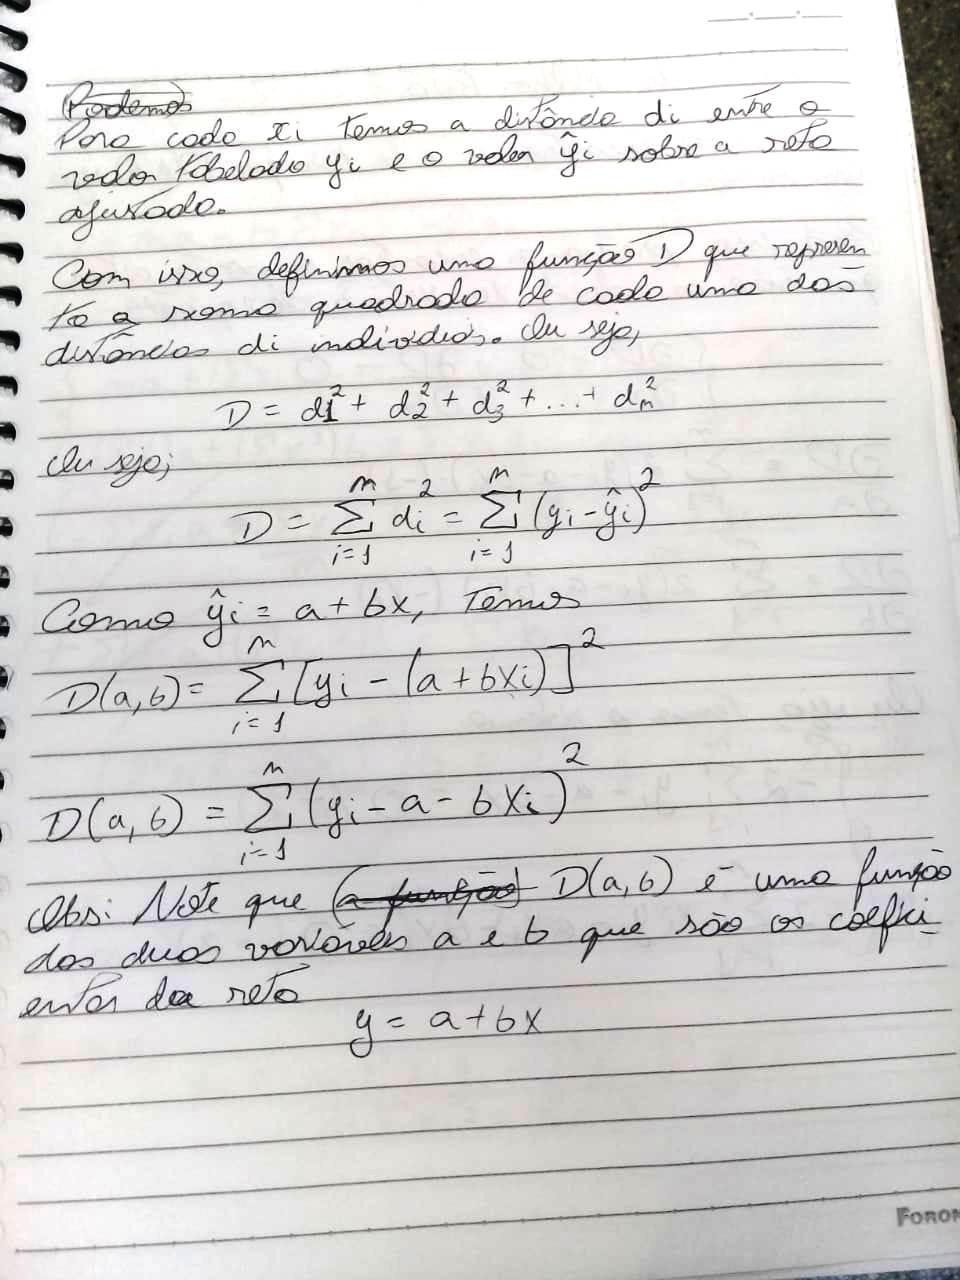 Podemos
Para cada xi temos a distância di entre o
valor tabelado yi e o valor ŷi sobre a reta
ajustada.
Com isso, definimos uma função D que represen
ta a soma quadrada de cada uma das
distâncias di individuais. Ou seja,
D = d1² + d2² + d3² + ... + dn²
Ou seja;
D = Σ_{i=1}^{n} di² = Σ_{i=1}^{n} (yi - ŷi)²
Como ŷi = a + bx, temos
D(a, b) = Σ_{i=1}^{n} [yi - (a + bxi)]²
D(a, b) = Σ_{i=1}^{n} (yi - a - bxi)²
Obs: Note que (a função) D(a, b) é uma função
das duas variáveis a e b que são os coefici
entes da reta
y = a + bx
FORON